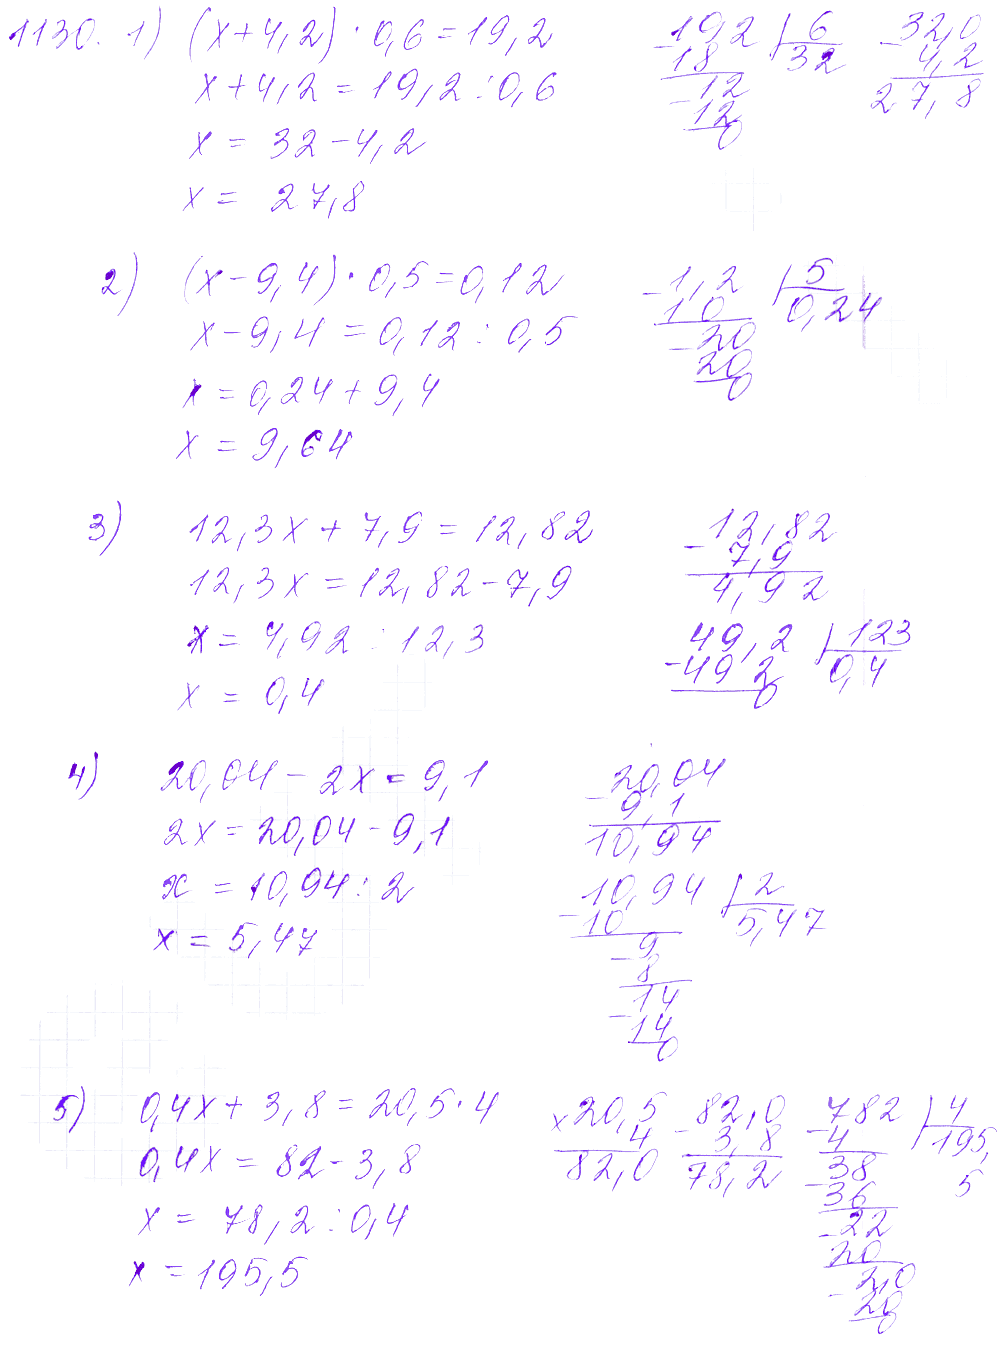 1130. 1) (x+4,2)·0,6=19,2
x+4,2=19,2:0,6
x = 32-4,2
x = 27,8
-192 6
18 32
-12
12
0
-32,0
4,2
27,8
2) (x-9,4)·0,5=0,12
x-9,4=0,12:0,5
x=0,24+9,4
x=9,64
-1,2 5
10 0,24
-20
20
0
3) 12,3x+7,9=12,82
12,3x=12,82-7,9
x=4,92:12,3
x=0,4
-12,82
7,9
4,92
49,2 123
-49 2 0,4
0
4) 20,04-2x=9,1
2x=20,04-9,1
x=10,94:2
x=5,47
-20,04
9,1
10,94
10,94 2
-10 5,47
-9
8
-14
14
0
5) 0,4x+3,8=20,5·4
0,4x=82-3,8
x=78,2:0,4
x=195,5
x20,5
4
82,0
-82,0
3,8
78,2
-782 4
4 195,
5
-38
36
-22
20
-2,0
20
0